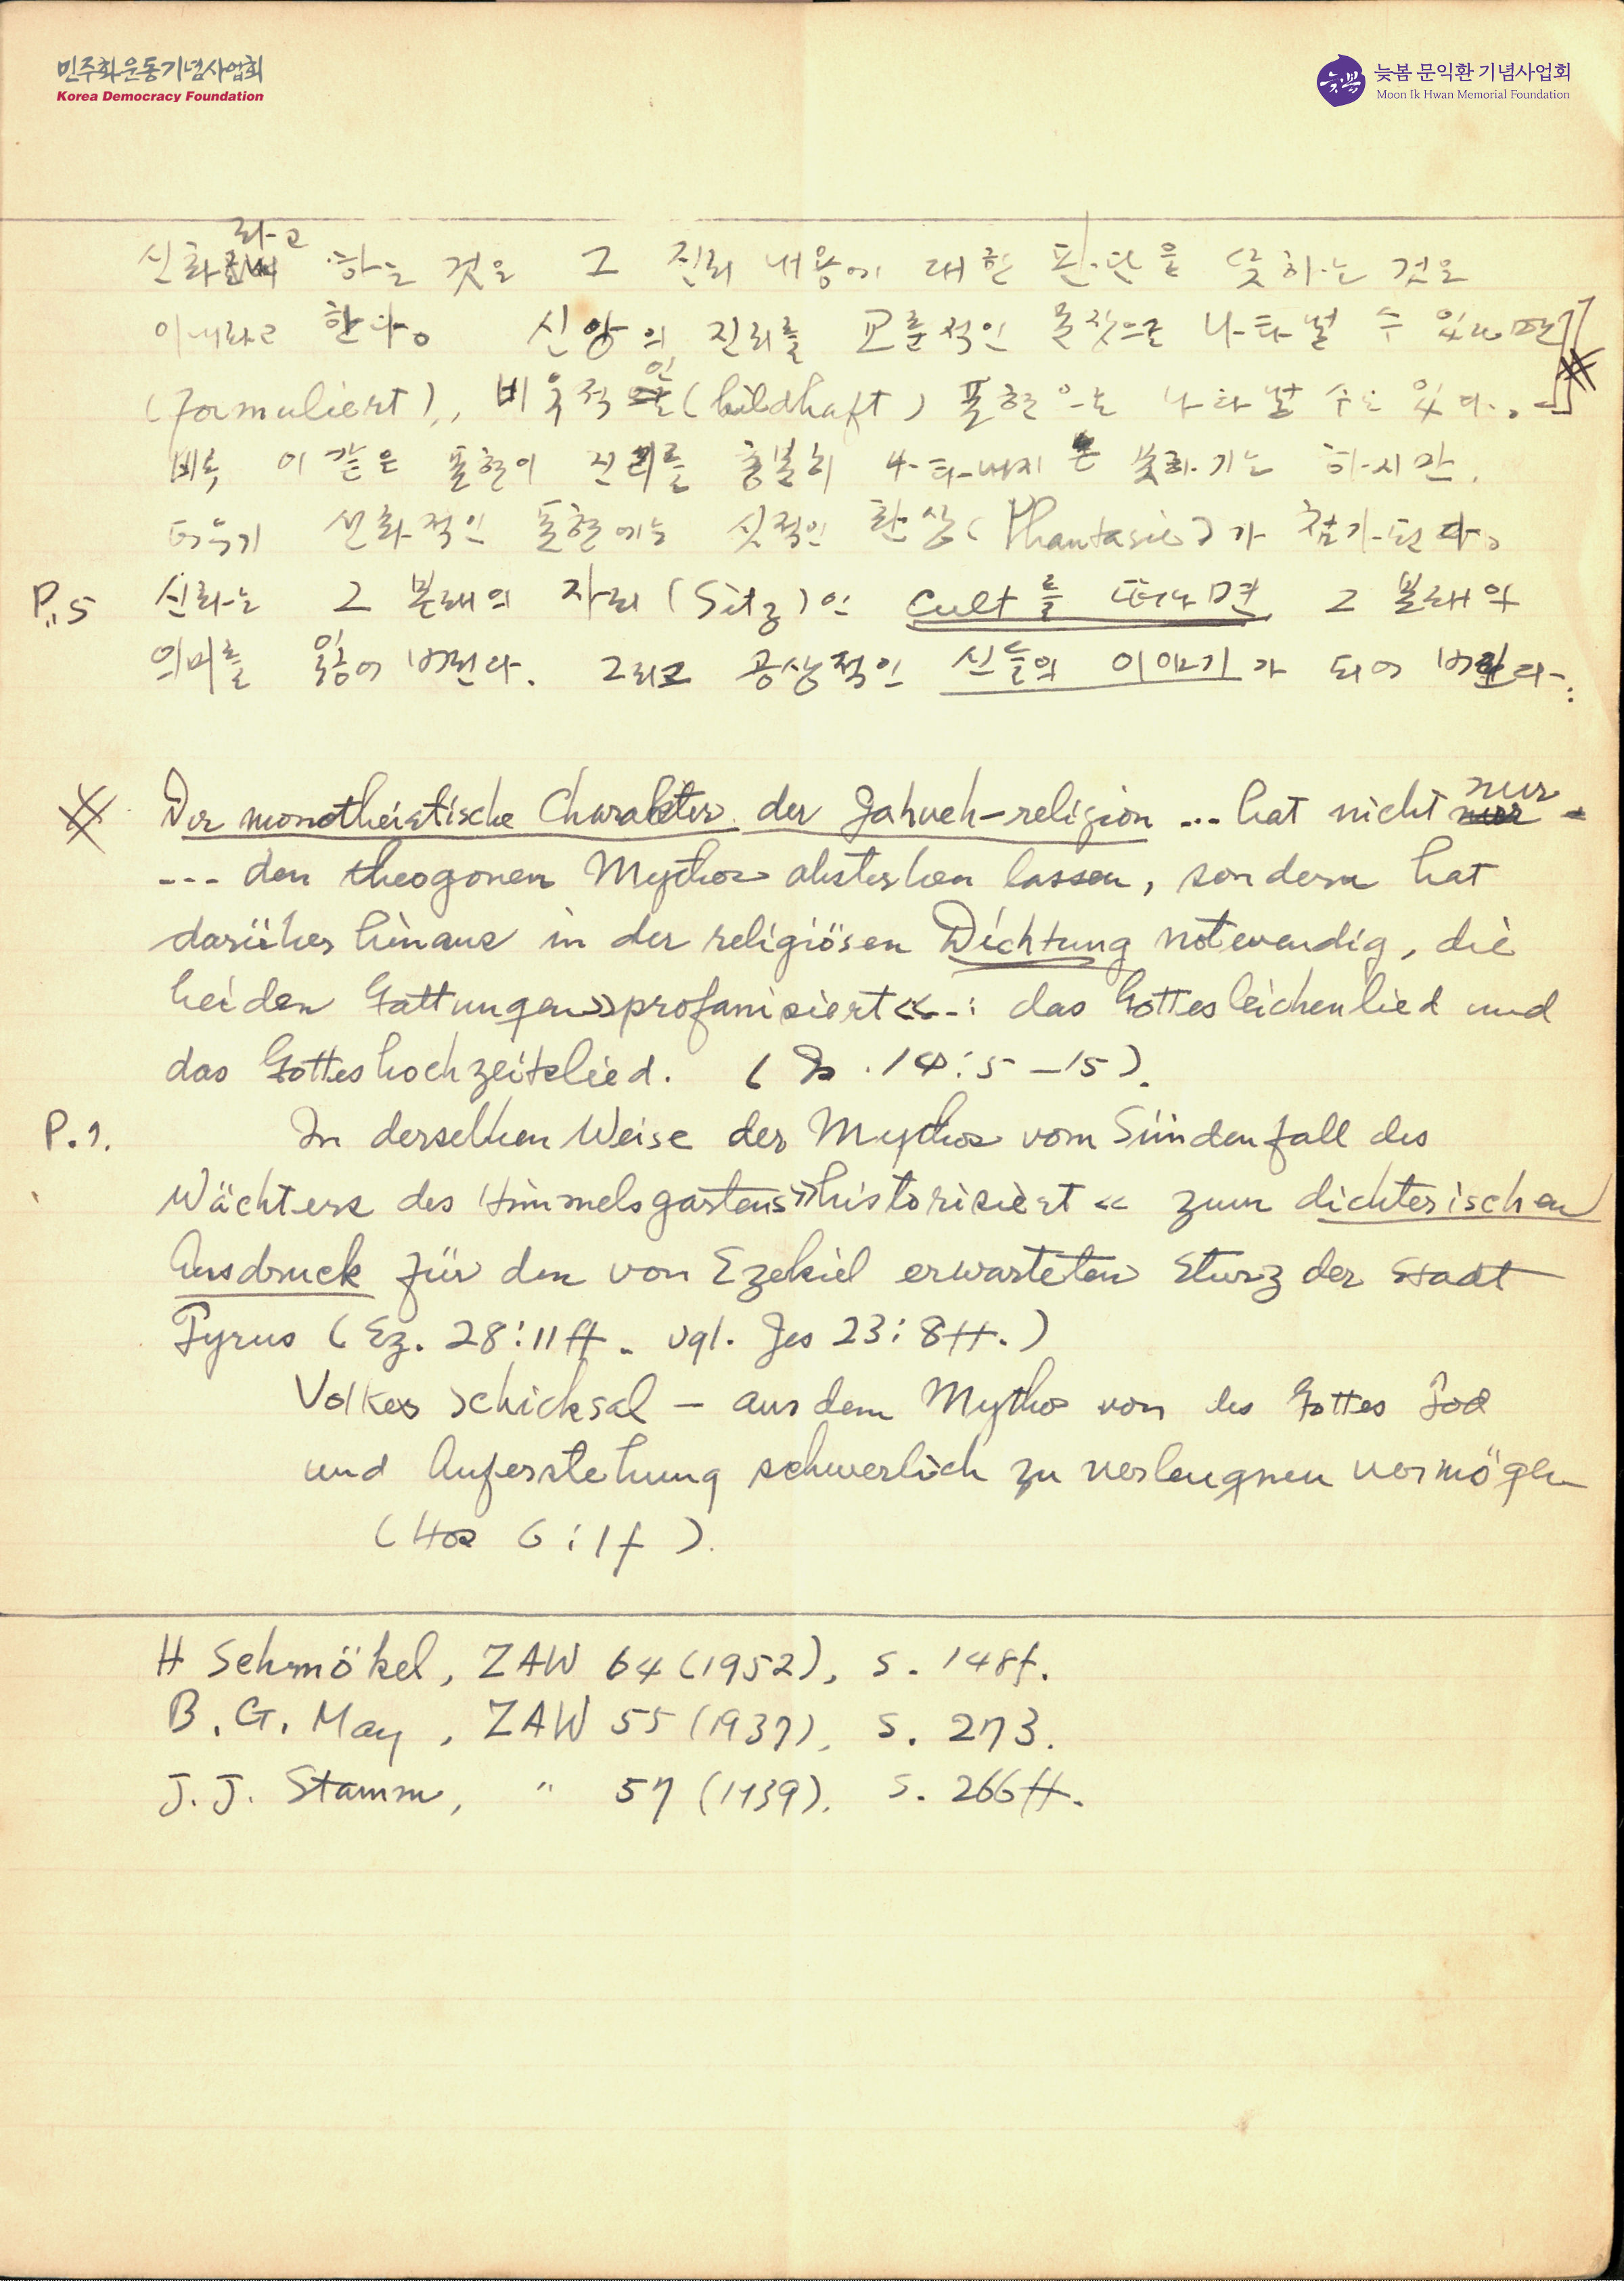 민주화운동기념사업회
Korea Democracy Foundation
늦봄 문익환 기념사업회
Moon Ik Hwan Memorial Foundation
라고
신화 하는 것은 그 진리 내용에 대한 판단을 뜻하는 것은
아니라고 한다。 신앙의 진리를 교훈적인 문장으로 나타낼 수 있으며
(formuliert), 비유적인 (bildhaft) 표현으로 나타낼 수도 있다。
비록 이 같은 표현이 진리를 충분히 나타내지는 못하기는 하지만,
더욱기 신화적인 표현에는 시적인 환상(Phantasie)가 첨가된다。
P. 5 신화는 그 본래의 자리(Sitz)인 cult를 떠나면 그 본래의
의미를 잃어 버린다. 그리고 공상적인 신들의 이야기가 되어 버린다.
Der monotheistische Charakter der Jahveh-religion ... hat nicht nur
--- den theogonen Mythos absterben lassen, sondern hat
darüber hinaus in der religiösen Dichtung notwendig, die
beiden Gattungen »profanisiert« : das Gottesleichenlied und
das Gotteshochzeitslied. ( 14:5-15).
P. 9. In derselben Weise der Mythos vom Sündenfall des
Wächters des Himmelsgartens »historisiert« zum dichterischen
Ausdruck für den von Ezekiel erwarteten Sturz der Stadt
Tyrus (Ez. 28:11ff. vgl. Jes 23:8ff.)
Volkes Schicksal – aus dem Mythos von des Gottes Tod
und Auferstehung schwerlich zu verleugnen vermögen
(Hos 6:1f).
H Schmökel, ZAW 64 (1952), S. 148f.
B. G. May, ZAW 55 (1937), S. 273.
J. J. Stamm, " 57 (1939), S. 266ff.